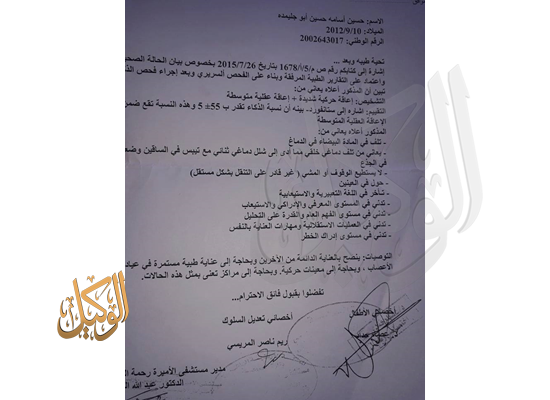 الاسم: حسين أسامه حسين أبو جليمده
الميلاد: 2012/9/10
الرقم الوطني: 2002643017
تحية طيبه وبعد ...
إشارة إلى كتابكم رقم ص م/5/أ/1678 بتاريخ 2015/7/26 بخصوص بيان الحالة الصحية
واعتماد على التقارير الطبية المرفقة وبناء على الفحص السريري وبعد إجراء فحص الذ
تبين أن المذكور أعلاه يعاني من:
التشخيص: إعاقة حركية شديدة + إعاقة عقلية متوسطة
التقييم: اشاره إلى ستانفورد- بينه أن نسبة الذكاء تقدر ب 55± 5 وهذه النسبة تقع ضمن
الإعاقة العقلية المتوسطة
المذكور أعلاه يعاني من:
- تلف في المادة البيضاء في الدماغ
- يعاني من تلف دماغي خلقي مما أدى إلى شلل دماغي ثنائي مع تيبس في الساقين وضعف
في الجذع
- لا يستطيع الوقوف أو المشي ( غير قادر على التنقل بشكل مستقل)
- حول في العينين
- تأخر في اللغة التعبيرية والاستيعابية
- تدني في المستوى المعرفي والإدراكي والاستيعاب
- تدني في مستوى الفهم العام والقدرة على التحليل
- تدني في العمليات الاستقلالية ومهارات العناية بالنفس
- تدني في مستوى إدراك الخطر
التوصيات: ينصح بالعناية الدائمة من الآخرين وبحاجة إلى عناية طبية مستمرة في عياد
الأعصاب ، وبحاجة إلى معينات حركية. وبحاجة إلى مراكز تعنى بمثل هذه الحالات.
تفضلوا بقبول فائق الاحترام...
الأطفال
أخصائي تعديل السلوك
ريم ناصر المريسي
مدير مستشفى الأميرة رحمة ا
الدكتور عبد الله
الوكيل
الوكيل